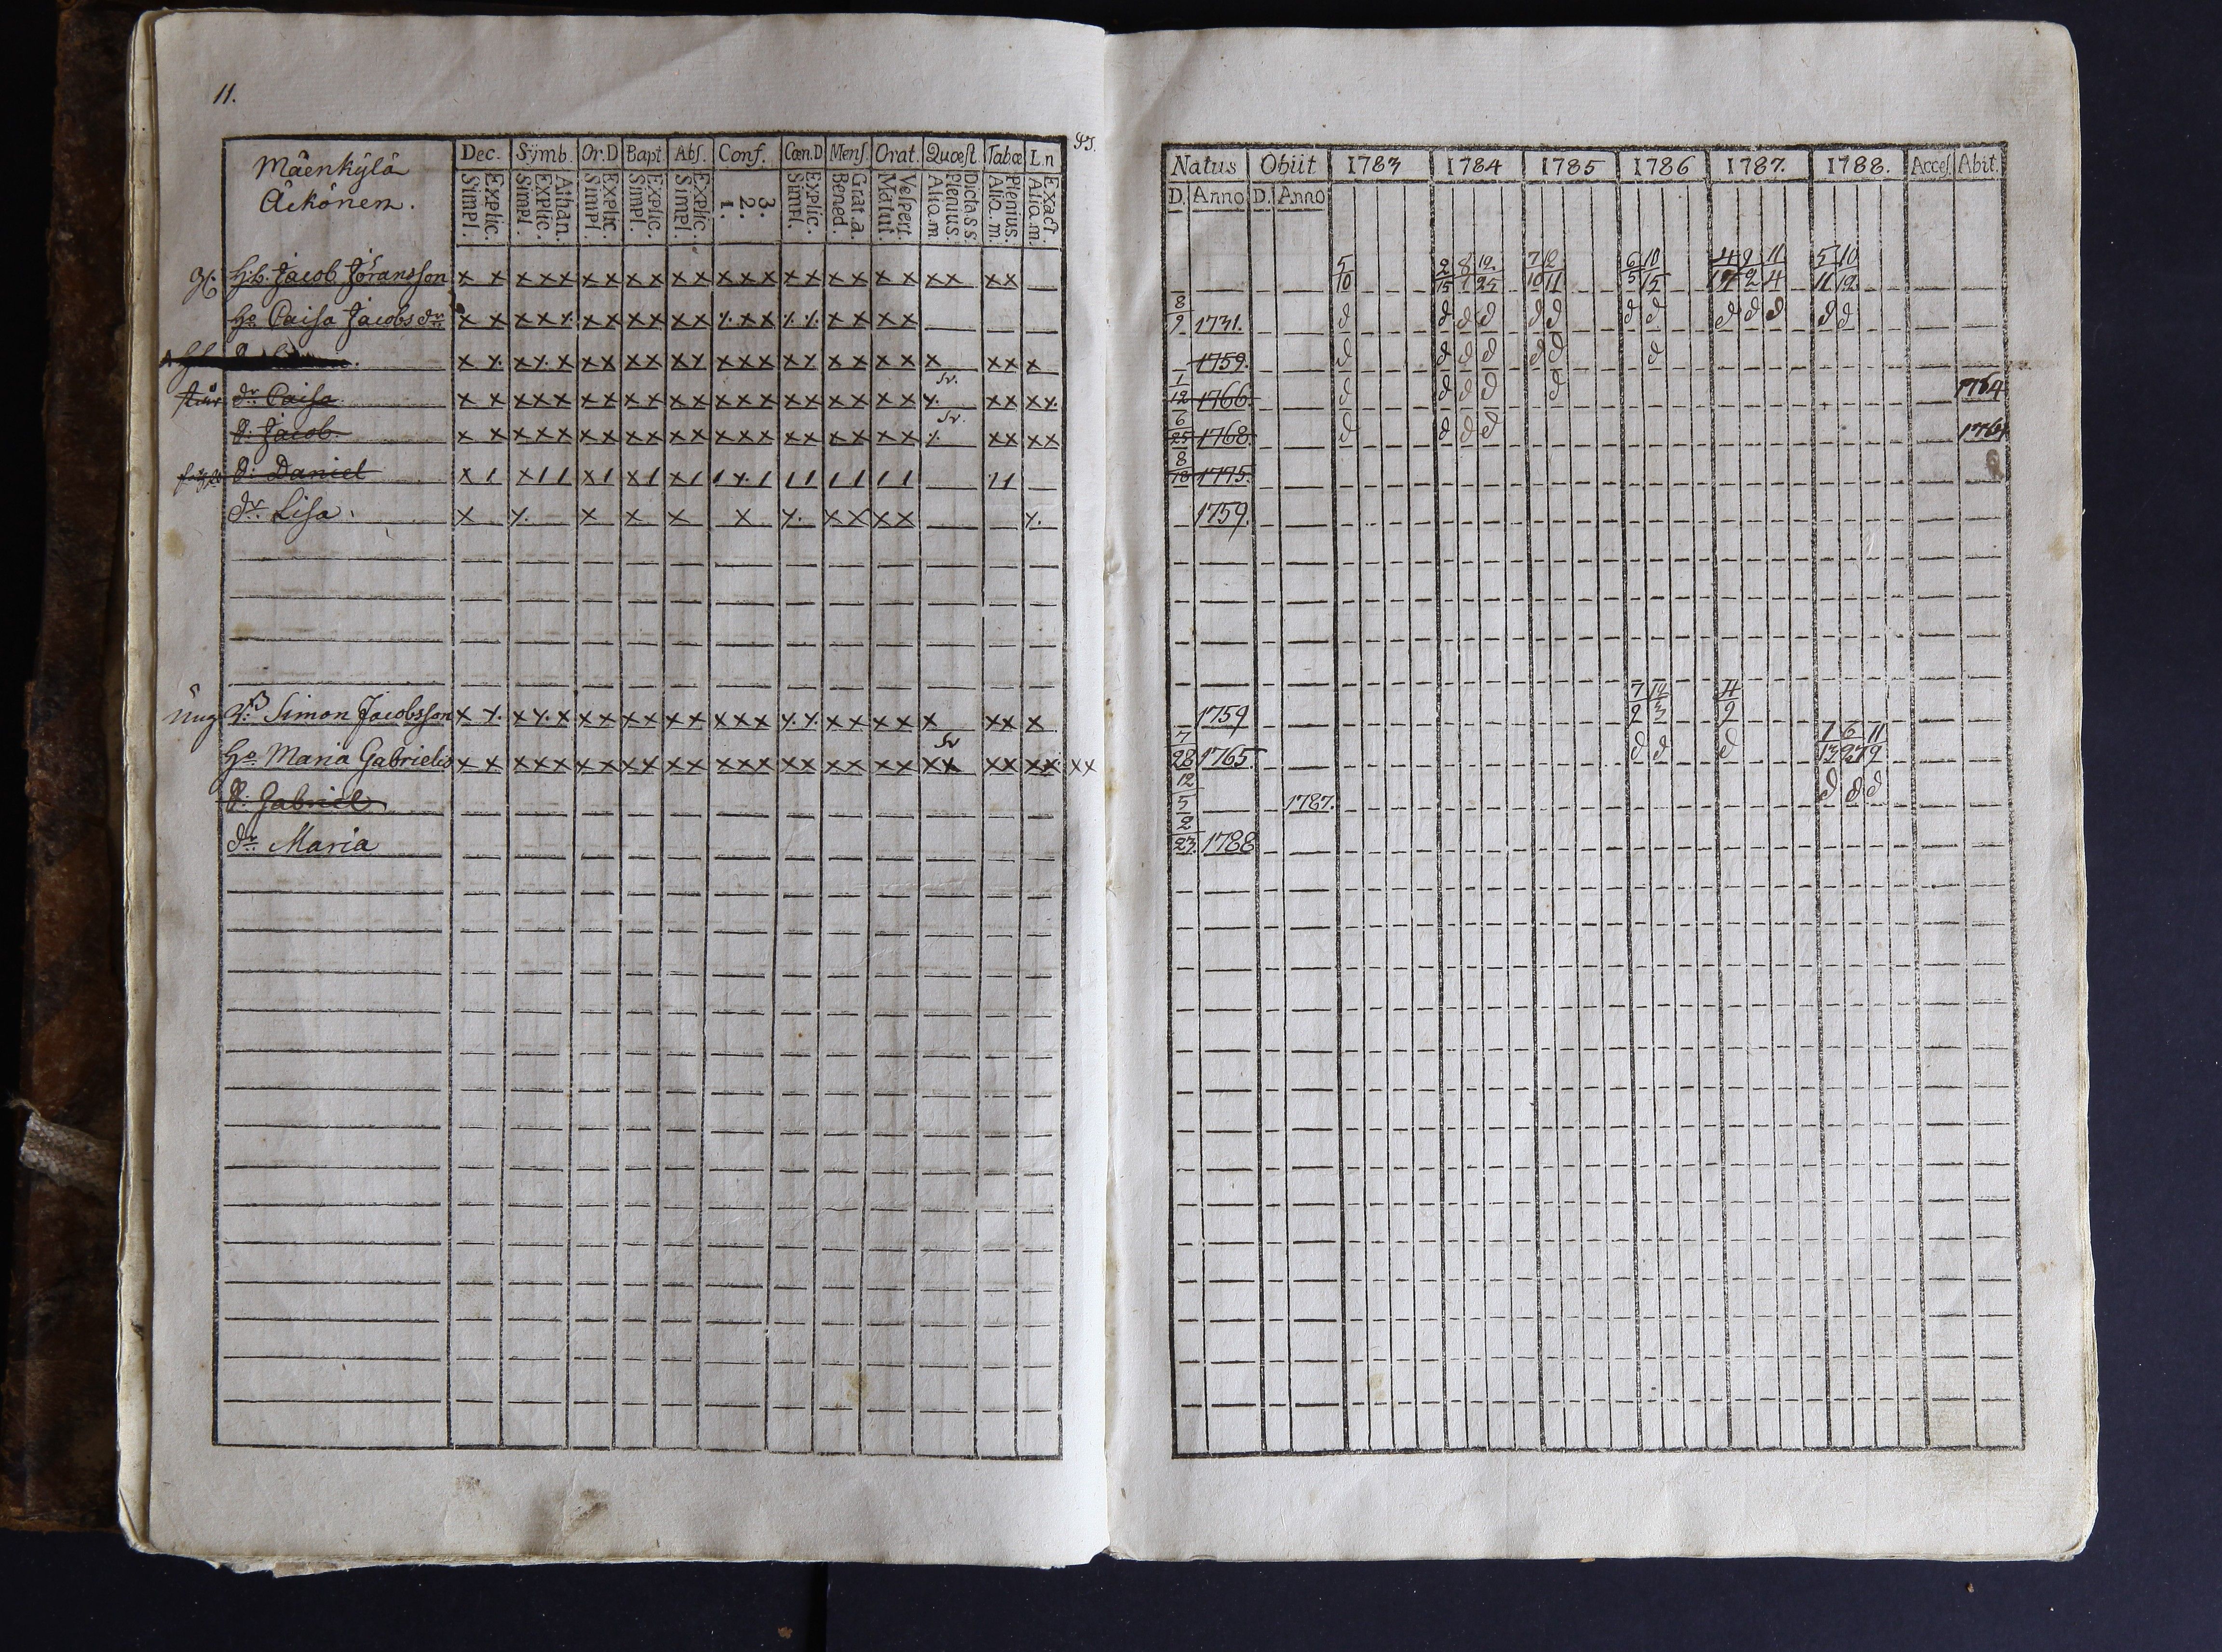 11.
45.
Mäenkÿlä
Äckönem.
Dec. Sÿmb. Or.D Bapt Abſ. Conf. Cœn.D Menſ. Orat. Quæſt. Tabœ L.n
Explic. Simpl. Athan. Explic. Simpl. Explic. Simpl. Explic. Simpl. Explic. Simpl. 3. 2. 1. Explic. Simpl. Grat.a. Bened. Veſpert. Matut. Dicta S.S. Plenius. Aliq.m Plenius. Aliq.m. Exact. Aliq.m.
H.b. Jacob Jöransſon x x x x x x x x x x x x x x x x x x x x x x x x
Ho Caisa Jacobs dr x x x x y. x x x x x x y. x x y. y. x x x x
x y. x y. x x x x x x y x x x x y x x x x x x x x
dr Caisa x x x x x x x x x x x x x x x x x x x x y. Sv. x x x y.
S: Jacob x x x x x x x x x x x x x x x x x x x x y. Sv. x x x x
S: Daniel x 1 x 1 1 x 1 x 1 x 1 1 y. 1 1 1 1 1 1 1 1 1
dr Lisa x y. x x x x y. x x x x y.
Simon Jacobsſon x y. x y. x x x x x x x x x x y. y. x x x x x x x x
Ho Maria Gabriels x x x x x x x x x x x x x x x x x x x x x x Sv x x x x x x
S: Gabriel
dr Maria
Natus Obiit 1783 1784 1785 1786 1787. 1788. Acceſ. Abit.
D. Anno D. Anno
5/10 2/15 8/1 12/25 7/10 12/11 6/5 10/15 4/17 9/2 11/4 5/11 10/12
8/9 1731. d d d d d d d d d d d d d
1759. d d d d d d d
1/12 1766. d d d d d 1784
6/25 1768. d d d d 1784
8/18 1775.
1759.
1759 7/2 10/3 4/2
7/28 1765. d d d 1/13 6/27 11/9
12/5 1787. d d d
2/23. 1788